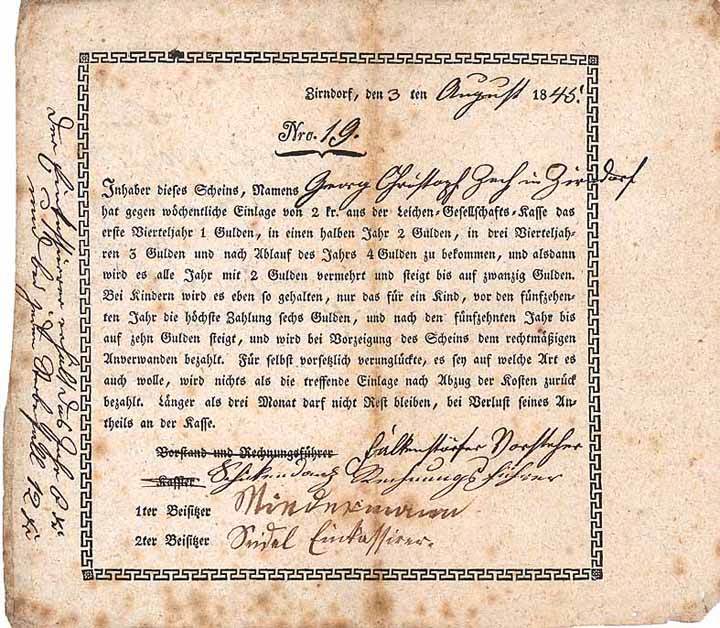 Zirndorf, den 3 ten August 1845.
Nro. 19.
Inhaber dieses Scheins, Namens Georg Christoph Zech in Zirndorf
hat gegen wöchentliche Einlage von 2 kr. aus der Leichen-Gesellschafts-Kasse das
erste Vierteljahr 1 Gulden, in einen halben Jahr 2 Gulden, in drei Vierteljah-
ren 3 Gulden und nach Ablauf des Jahrs 4 Gulden zu bekommen, und alsdann
wird es alle Jahr mit 2 Gulden vermehrt und steigt bis auf zwanzig Gulden.
Bei Kindern wird es eben so gehalten, nur das für ein Kind, vor den fünfzehen-
ten Jahr die höchste Zahlung sechs Gulden, und nach den fünfzehnten Jahr bis
auf zehn Gulden steigt, und wird bei Vorzeigung des Scheins dem rechtmäßigen
Anverwanden bezahlt. Für selbst vorsetzlich verunglückte, es sey auf welche Art es
auch wolle, wird nichts als die treffende Einlage nach Abzug der Kosten zurück
bezahlt. Länger als drei Monat darf nicht Rest bleiben, bei Verlust seines An-
theils an der Kasse.
Vorstand und Rechnungsführer Falkenstörfer Vorsteher
Kassier Rechnungsführer
1ter Beisitzer
2ter Beisitzer Seidel Einkassirer.
Der Einkassierer erhält das Jahr 8 kr
und bei jedem Sterbefall 12 kr